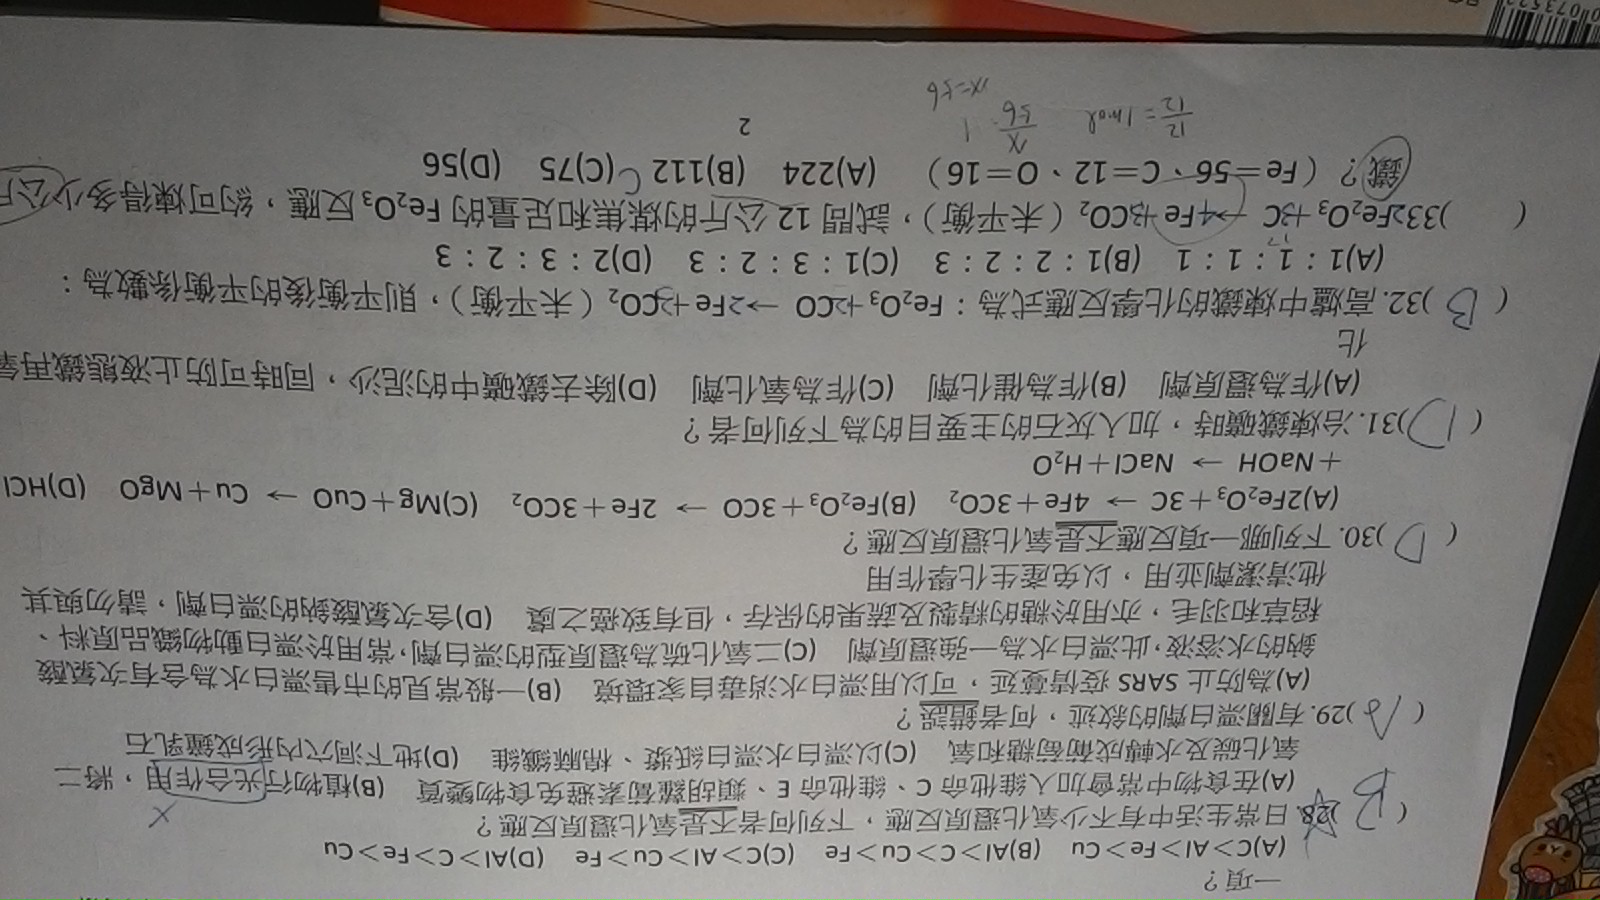 一項?
(A)C>Al>Fe>Cu (B)Al>C>Cu>Fe (C)C>Al>Cu>Fe (D)Al>C>Fe>Cu
( B )28. 日常生活中有不少氧化還原反應,下列何者不是氧化還原反應?
(A)在食物中常會加入維他命 C、維他命 E、類胡蘿蔔素避免食物變質 (B)植物行光合作用,將二
氧化碳及水轉成葡萄糖和氧 (C)以漂白水漂白紙漿、棉麻纖維 (D)地下洞穴內形成鐘乳石
( A )29. 有關漂白劑的敘述,何者錯誤?
(A)為防止 SARS 疫情蔓延,可以用漂白水消毒自家環境 (B)一般常見的市售漂白水為含有次氯酸
鈉的水溶液,此漂白水為一強還原劑 (C)二氧化硫為還原型的漂白劑,常用於漂白動物織品原料、
稻草和羽毛,亦用於糖的精製及蔬果的保存,但有致癌之虞 (D)含次氯酸鈉的漂白劑,請勿與其
他清潔劑並用,以免產生化學作用
( D )30. 下列哪一項反應不是氧化還原反應?
(A)2Fe₂O₃+3C → 4Fe+3CO₂ (B)Fe₂O₃+3CO → 2Fe+3CO₂ (C)Mg+CuO → Cu+MgO (D)HCl
+NaOH → NaCl+H₂O
( D )31. 冶煉鐵礦時,加入灰石的主要目的為下列何者?
(A)作為還原劑 (B)作為催化劑 (C)作為氧化劑 (D)除去鐵礦中的泥沙,同時可防止液態鐵再氧
化
( B )32. 高爐中煉鐵的化學反應式為:Fe₂O₃+CO →2Fe+CO₂(未平衡),則平衡後的平衡係數為:
(A)1:1:1:1 (B)1:2:2:3 (C)1:3:2:3 (D)2:3:2:3
( )33. 2Fe₂O₃+3C →4Fe+3CO₂(未平衡),試問 12 公斤的煤焦和足量的 Fe₂O₃ 反應,約可煉得多少公斤
鐵?(Fe=56、C=12、O=16) (A)224 (B)112 (C)75 (D)56
12/12=1mol x/56 1
2
x=56